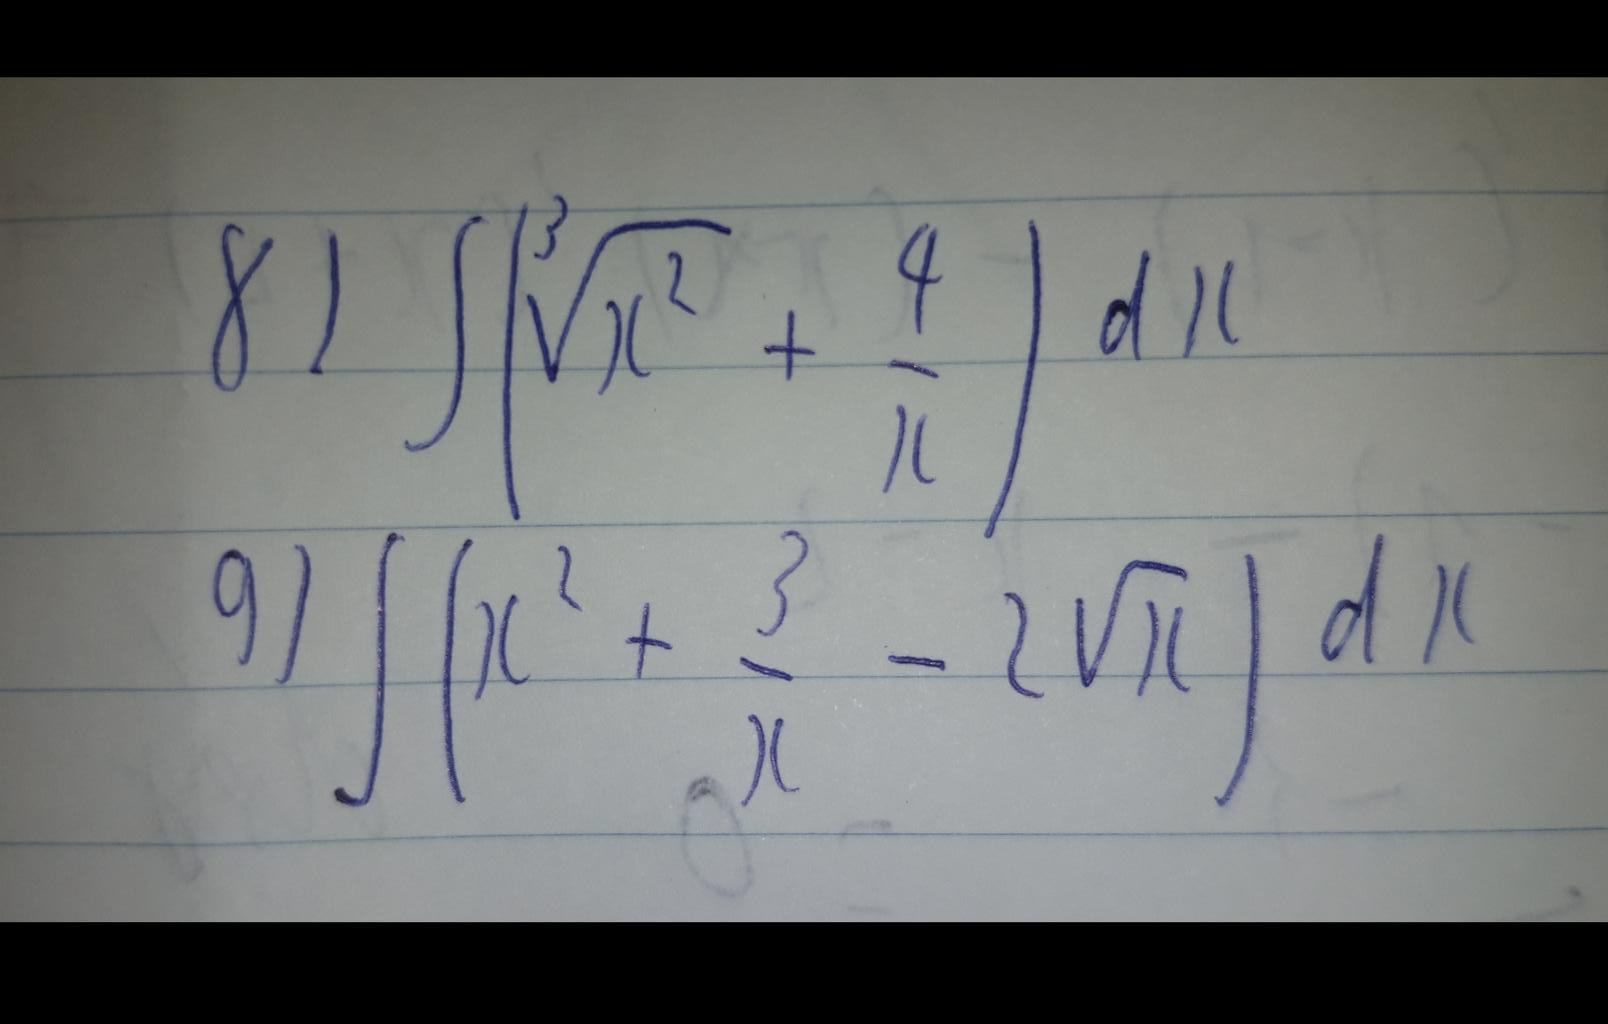 8) ∫(∛x² + 4/x) dx
9) ∫(x² + 3/x - 2√x) dx